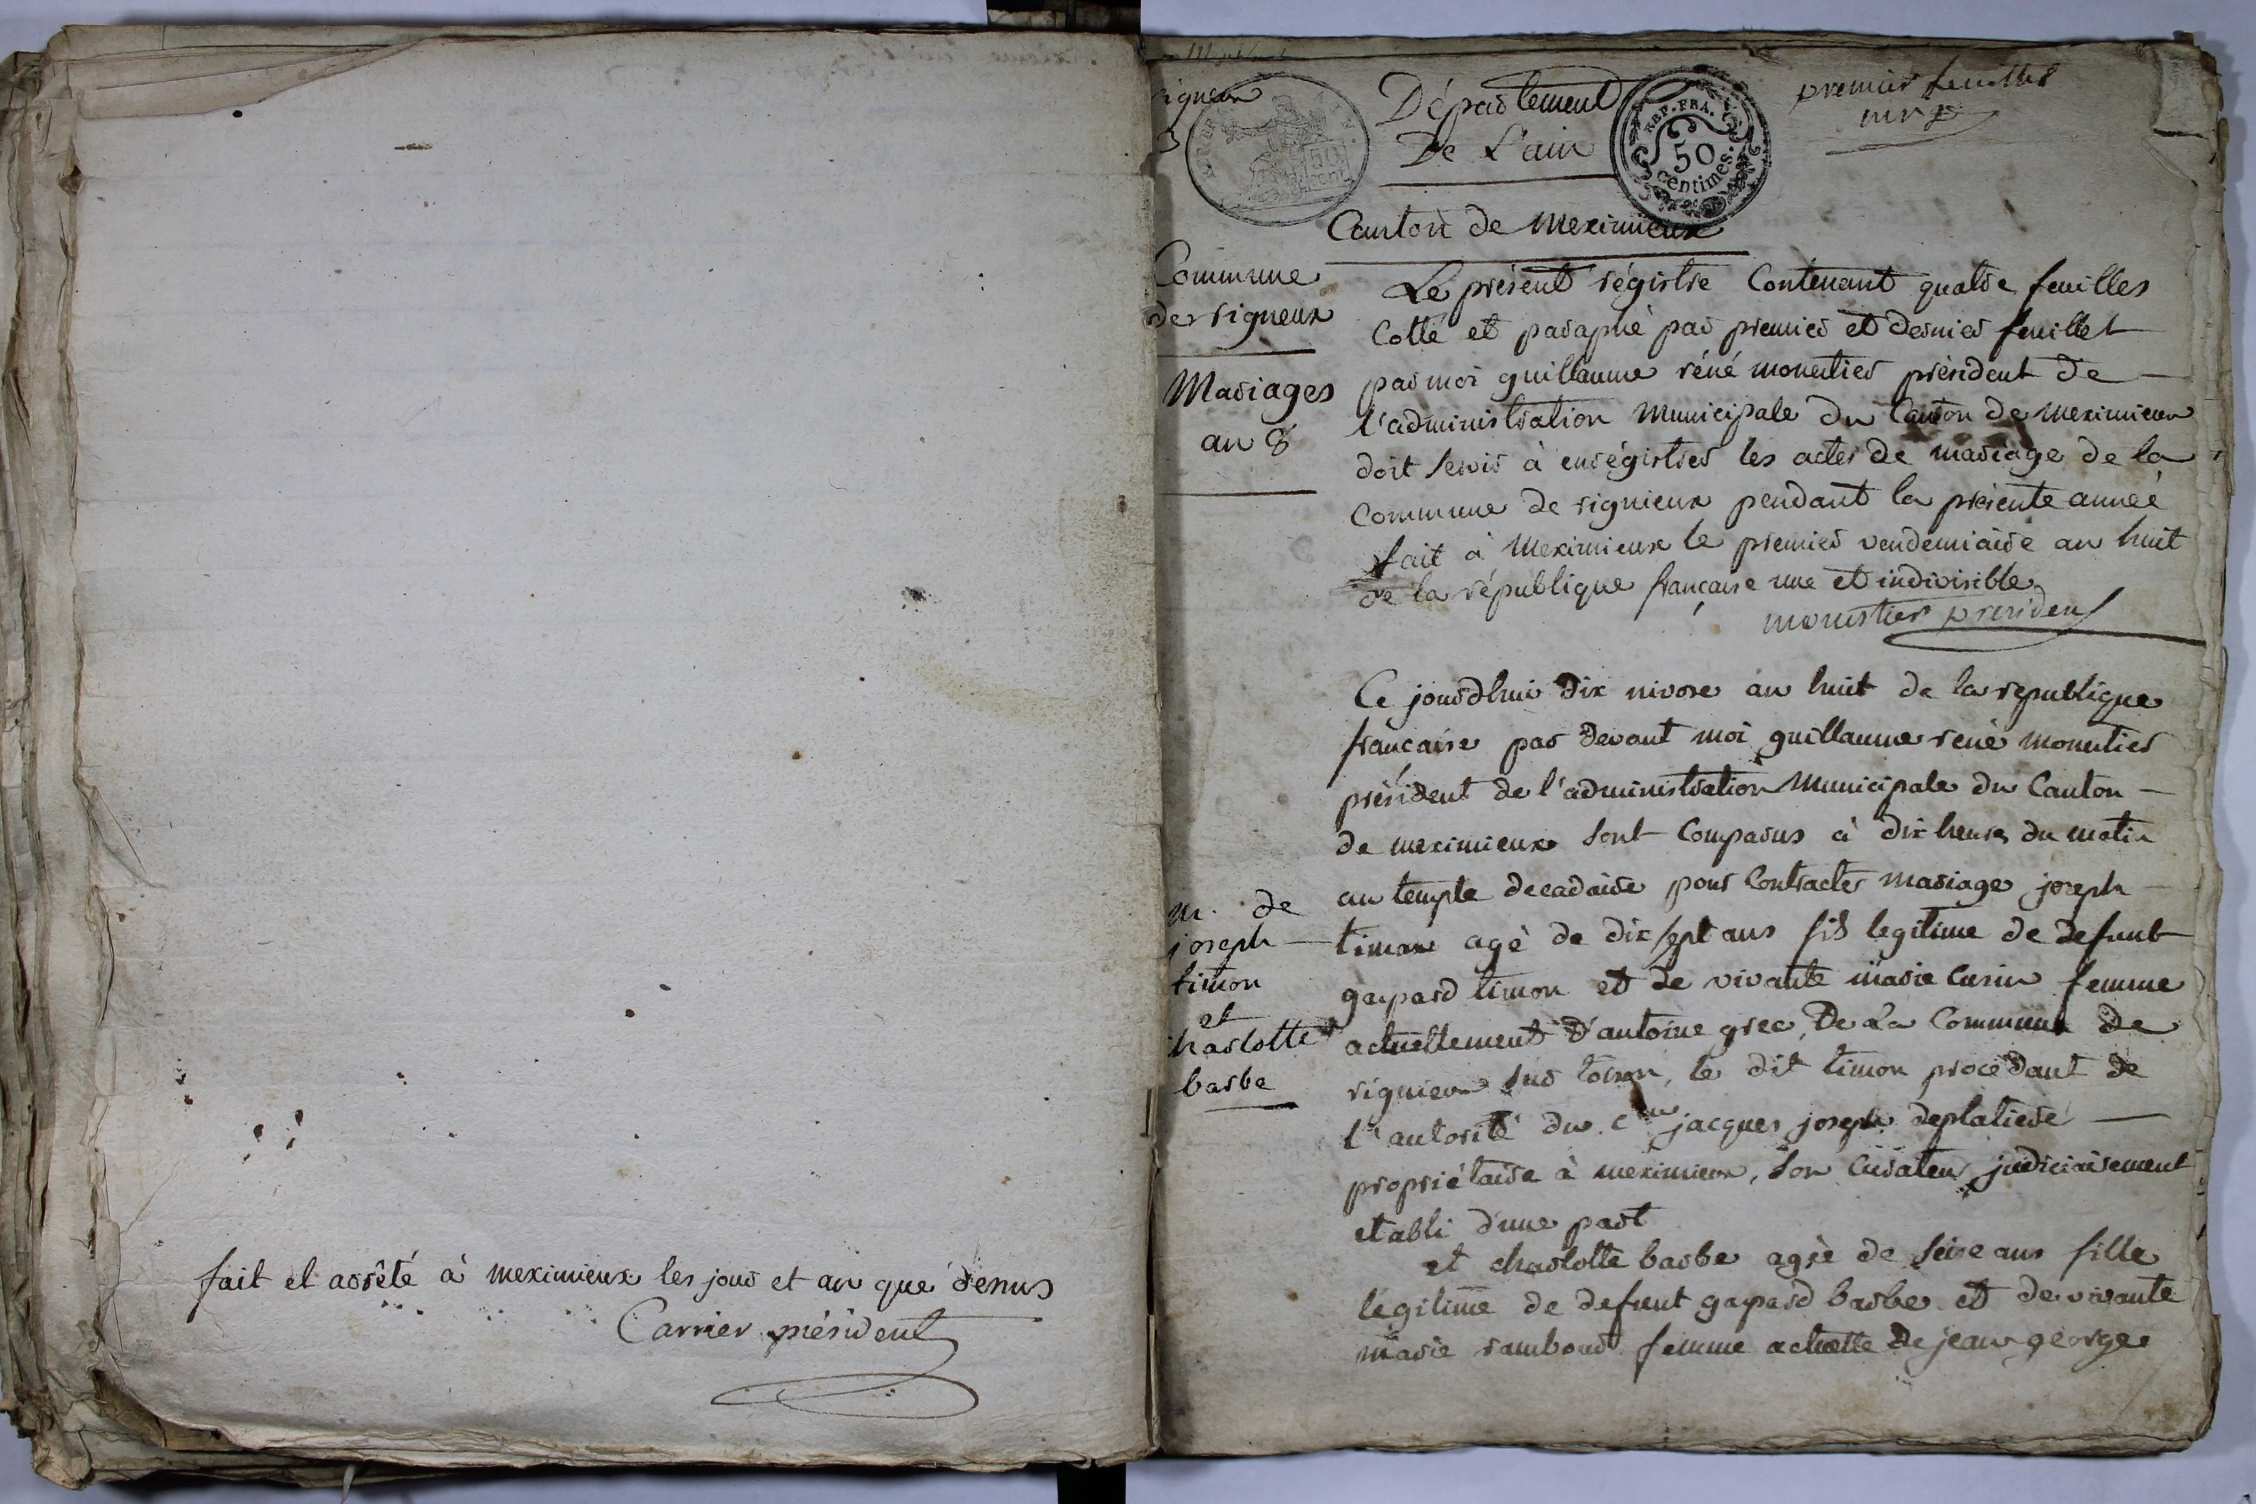 fait et arrêté à meximieux les jour et an que dessus
Carrier président
rigneux
3
Département
De L'ain
REP. FRA.
50
centimes.
premier feuillet
mrp
Canton de Meximieux
Commune
de rigneux
Mariages
an 8
Le présent régistre Contenant quatre feuilles
Cotté et paraphé par premier et dernier feuillet
par moi guillaume réné monestier président de
l'administration Municipale du Canton de meximieux
doit servir à enrégistrer les actes de mariage de la
Commune de rignieux pendant la présente anneé
fait à Meximieux le premier vendemiaire an huit
de la république française une et indivisible
monestier president
Ce jourdhui dix nivose an huit de la republique
francaise par devant moi guillaume réné monestier
président de l'administration Municipale du Canton
de meximieux sont Comparus à dix heures du matin
au temple decadaire pour Contracter mariage joseph
timon agé de dix sept ans fils legitime de defunt
gaspard timon et de vivante marie cusin femme
actuellement d'antoine grec, De La Commune de
rignieux sur toison, le dit timon procédant de
l'autorité du c.en jacques joseph deplatiere
propriétaire à meximieux, son Curateur judiciairement
etabli d'une part
m. de
joseph
timon
et
charlotte
barbe
et charlotte barbe agée de seise ans fille
légitime de defunt gaspard barbe et de vivante
marie rambour femme actuelle De jean george